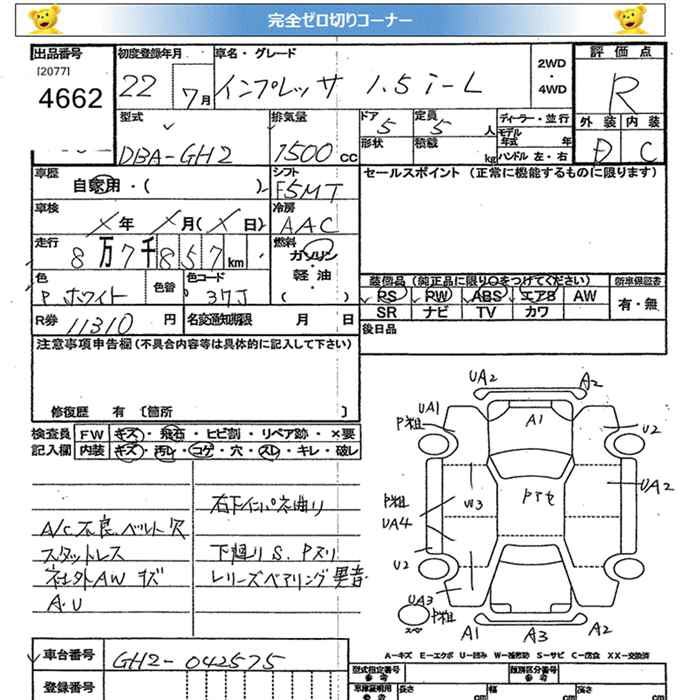 完全ゼロ切りコーナー
出品番号 初度登録年月 車名・グレード 2WD・4WD 評価点
[2077]
4662 22 7月 インプレッサ 1.5 i-L R
型式 排気量 ドア 定員 ディーラー・並行 外装 内装
DBA-GH2 1500cc 5 5人 モデル年式 年 D C
形状 積載 kg ハンドル 左・右
車歴 シフト セールスポイント (正常に機能するものに限ります)
自家用・( ) F5MT
車検 冷房
X年 X月(X日) AAC
走行 燃料
8万7千857km ガソリン・軽油
色 色替 色コード ( ) 装備品(純正品に限り○をつけてください) 新車保証書
P ホワイト 37J PS PW ABS エアB AW 有・無
R券 11310円 名変通知期限 月 日 SR ナビ TV カワ
後日品
注意事項申告欄(不具合内容等は具体的に記入して下さい)
修復歴 有 [箇所 ]
検査員 FW キズ・飛石・ヒビ割・リペア跡・×要
記入欄 内装 キズ・汚れ・コゲ・穴・スレ・キレ・破レ
右下インパネ曲り
A/C不良.ベルト欠
スタットレス 下廻りS.Pスリ
社外AWキズ レリーズベアリング異音
A.U
UA2 A2
UA1 P粗 A1 U2
W3 Pyセ UA2
P粗
UA4
U2
UA3
P粗
スペ A1 A3 A2
A-キズ E-エクボ U-凹み W-補修跡 S-サビ C-腐食 XX-交換済
車台番号 GH2-042575 型式指定番号 参考 類別区分番号 参考
登録番号 車庫証明用 参考 長さ cm 幅 cm 高さ cm